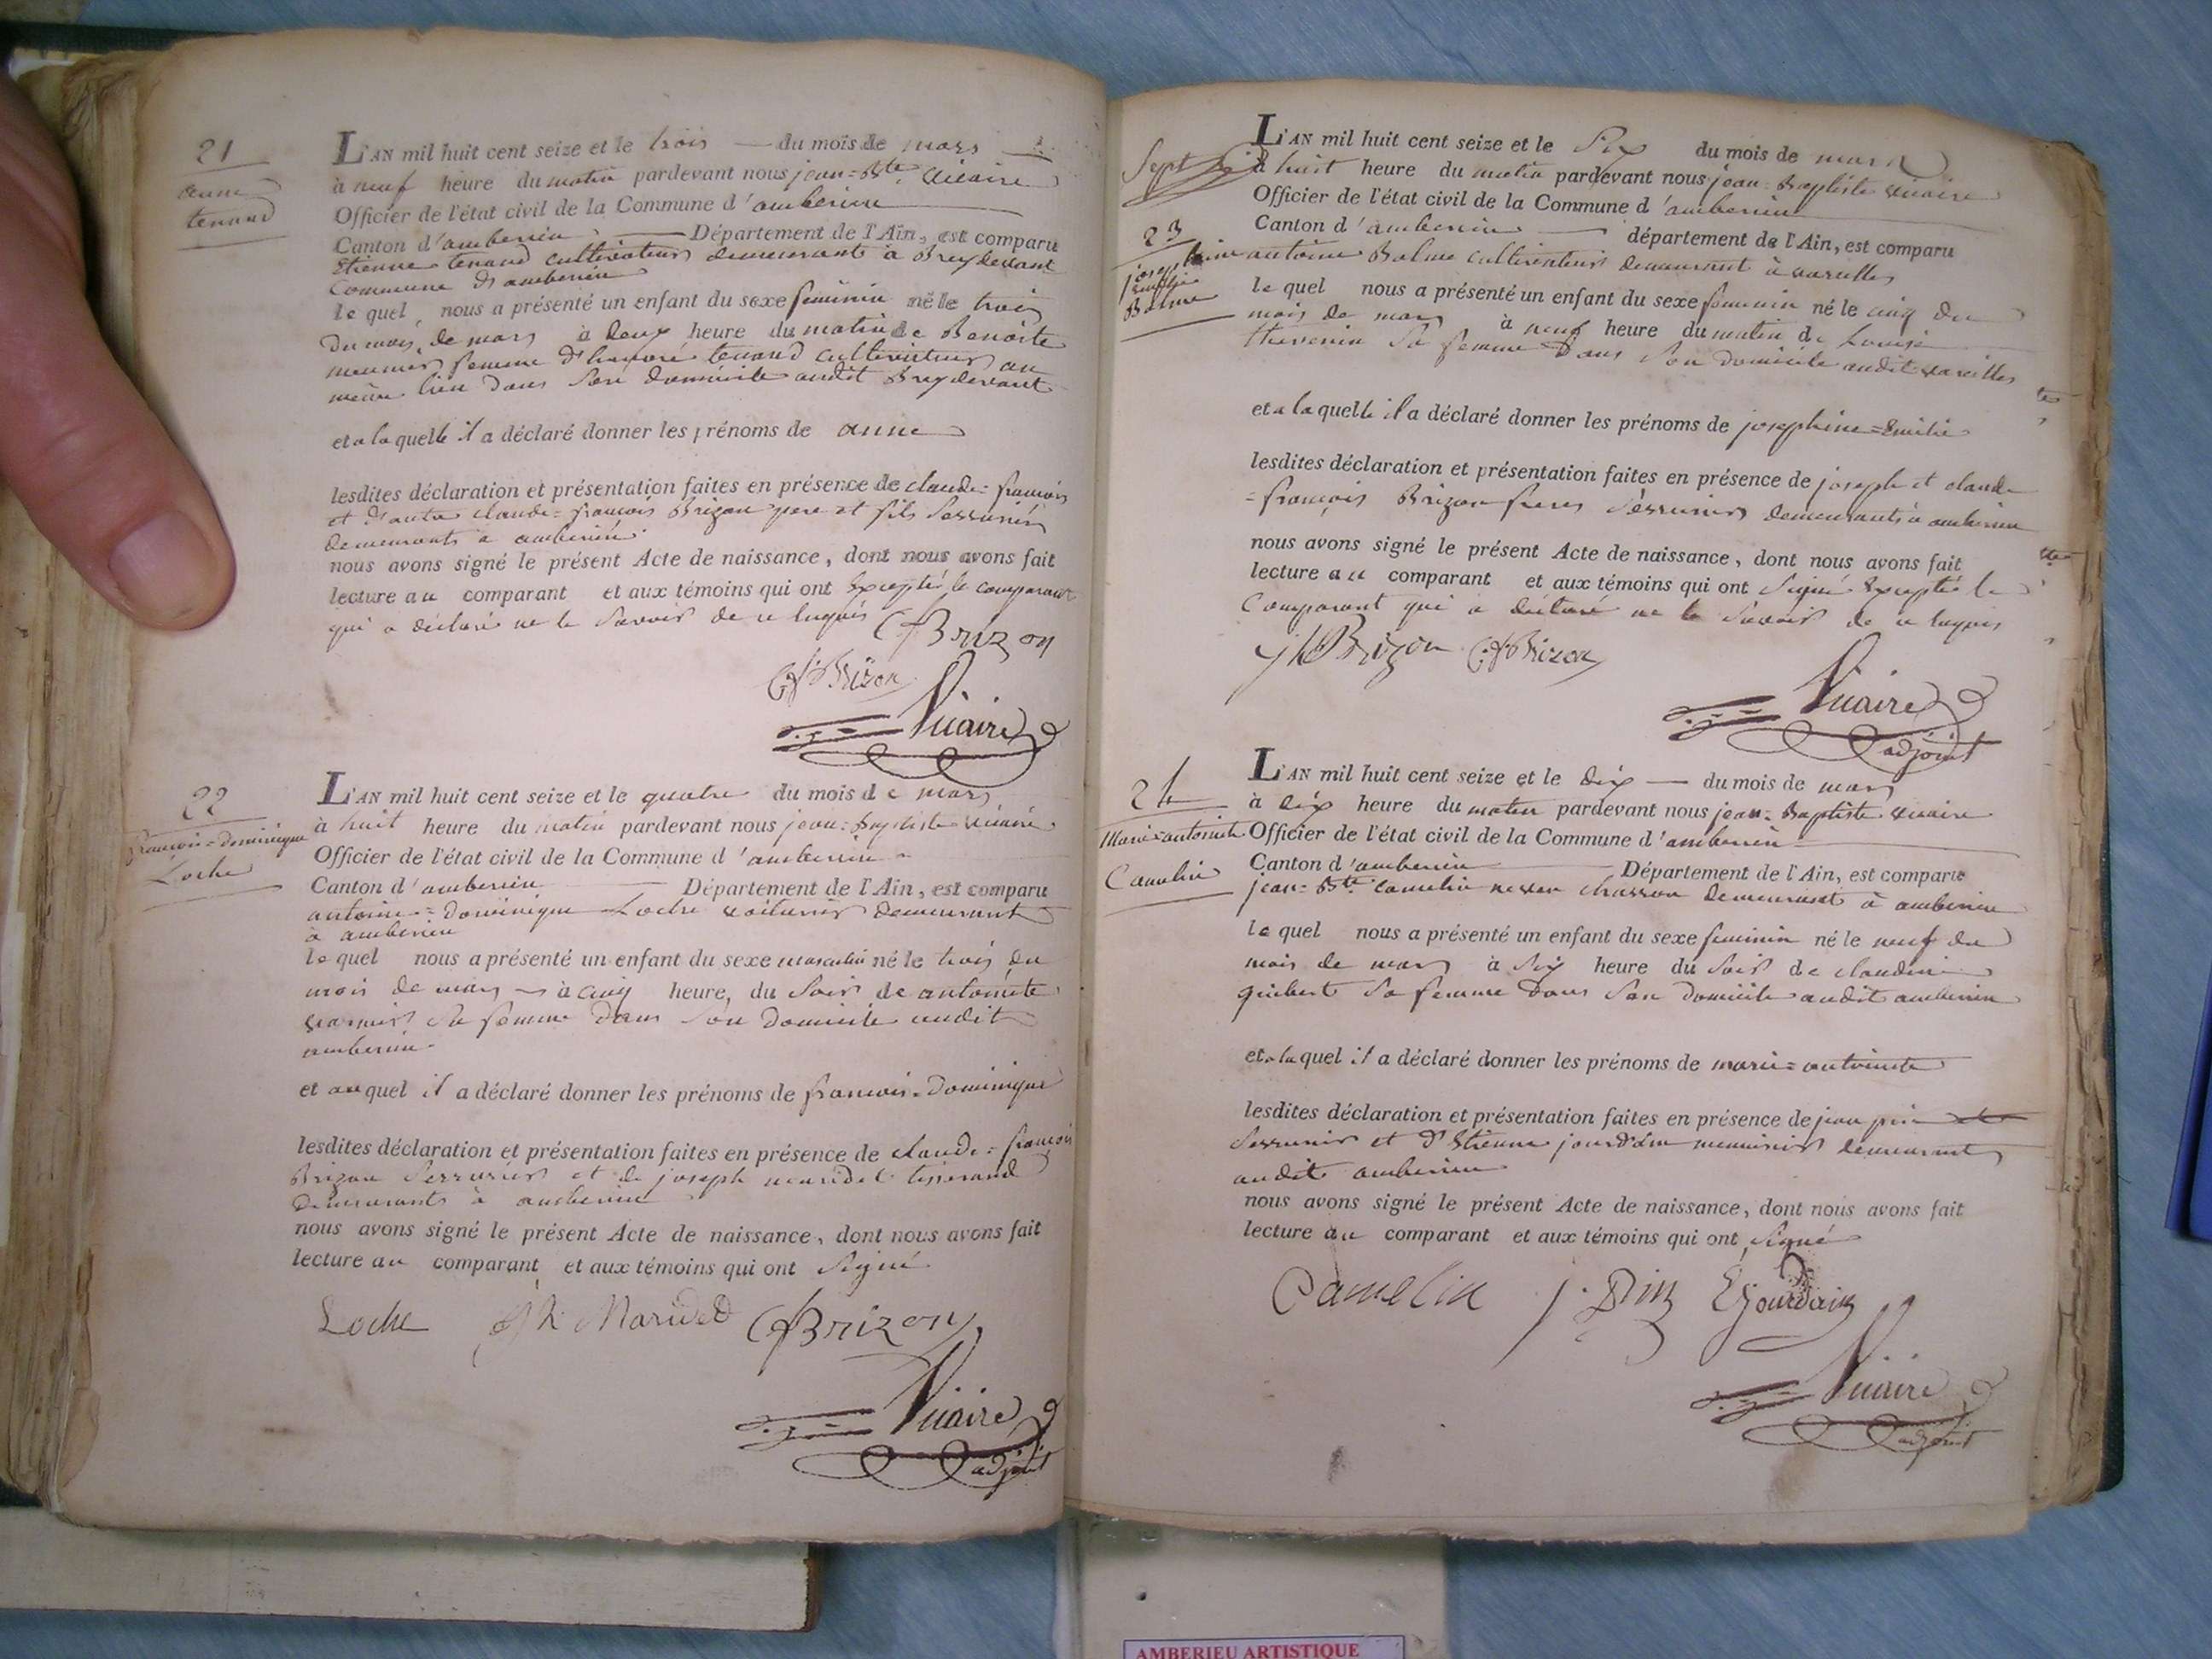 21
anne
tenand
L'AN mil huit cent seize et le trois du mois de mars
à neuf heure du matin pardevant nous jean=Bte. Vicaire
Officier de l'état civil de la Commune d'amberieu
Canton d'amberieu Département de l'Ain, est comparu
Etienne tenand cultivateur demeurants à Breydevant
Commune d'amberieu
le quel nous a présenté un enfant du sexe feminin né le trois
du mois de mars à deux heure du matin de Benoite
meunier femme d'honoré tenand cultivateur au
même lieu dans son domicile audit Breydevant
et a la quelle il a déclaré donner les prénoms de anne
lesdites déclaration et présentation faites en présence de claude=francois
et d'autre claude=francois Brizon pere et fils Serruriers
demeurants à amberieu
nous avons signé le présent Acte de naissance, dont nous avons fait
lecture au comparant et aux témoins qui ont Excepté le comparant
qui a déclaré ne le Savoir de ce enquis CfBrizon
CfBrizon
Vicaire
22
francois=dominique
Loche
L'AN mil huit cent seize et le quatre du mois de mars
à huit heure du matin pardevant nous jean=Baptiste Vicaire
Officier de l'état civil de la Commune d'amberieu
Canton d'amberieu Département de l'Ain, est comparu
antoine=dominique Loche voiturier demeurant
à amberieu
le quel nous a présenté un enfant du sexe masculin né le trois du
mois de mars à cinq heure, du Soir de antoinete
Sa femme dans Son domicile audit
amberieu
et au quel il a déclaré donner les prénoms de francois=dominique
lesdites déclaration et présentation faites en présence de claude=francois
Brizon Serrurier et de joseph maridet tisserand
demeurants à amberieu
nous avons signé le présent Acte de naissance, dont nous avons fait
lecture au comparant et aux témoins qui ont Signé
Loche Jh Maridet CfBrizon
Vicaire
adjoint
Sept
23
josephine
Emilie
Balme
L'AN mil huit cent seize et le Six du mois de mars
à huit heure du matin pardevant nous jean=Baptiste Vicaire
Officier de l'état civil de la Commune d'amberieu
Canton d'amberieu département de l'Ain, est comparu
antoine Balme cultivateur demeurant à Vareilles
le quel nous a présenté un enfant du sexe feminin né le cinq du
mois de mars à neuf heure du matin de Louise
thevenin Sa femme Dans Son Domicile audit Vareilles
et a la quelle il a déclaré donner les prénoms de josephine=Emilie
lesdites déclaration et présentation faites en présence de joseph et claude
=francois Brizon freres Serruriers demeurants à amberieu
nous avons signé le présent Acte de naissance, dont nous avons fait
lecture au comparant et aux témoins qui ont Signé Excepté le
Comparant qui a déclaré ne le Savoir de ce enquis
JhBrizon CfBrizon
Vicaire
adjoint
24
Marie=antoinete
Camelin
L'AN mil huit cent seize et le dix du mois de mars
à dix heure du matin pardevant nous jean=Baptiste Vicaire
Officier de l'état civil de la Commune d'amberieu
Canton d'amberieu Département de l'Ain, est comparu
jean=Bte. Camelin charron demeurant à amberieu
le quel nous a présenté un enfant du sexe feminin né le neuf du
mois de mars à Six heure du Soir de claudine
guibert Sa femme Dans Son Domicile audit amberieu
et a la quel il a déclaré donner les prénoms de marie=antoinete
lesdites déclaration et présentation faites en présence de jean pin
Serrurier et d'Etienne jourdain menuisier demeurant
audit amberieu
nous avons signé le présent Acte de naissance, dont nous avons fait
lecture au comparant et aux témoins qui ont Signé
Camelin j. Pin Ejourdain
Vicaire
adjoint
AMBERIEU ARTISTIQUE